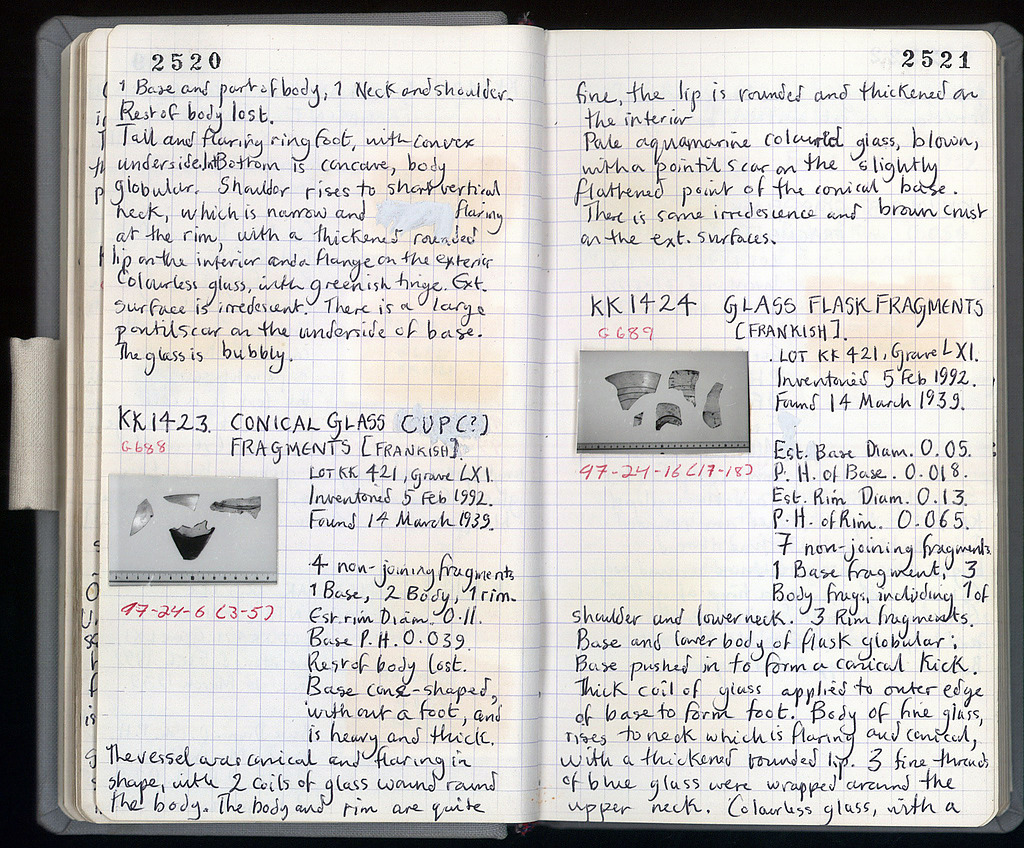 2520
1 Base and part of body, 1 Neck and shoulder.
Rest of body lost.
Tall and flaring ring foot, with convex
underside. Int Bottom is concave, body
globular. Shoulder rises to short vertical
neck, which is narrow and flaring
at the rim, with a thickened rounded
lip on the interior and a flange on the exterior
Colourless glass, with greenish tinge. Ext.
surface is irredescent. There is a large
pontil scar on the underside of base.
The glass is bubbly.
KK 1423. CONICAL GLASS CUP(?)
G688 FRAGMENTS [FRANKISH].
LOT KK 421, Grave LXI.
Inventoried 5 Feb 1992.
Found 14 March 1939.
4 non-joining fragments
1 Base, 2 Body, 1 rim.
97-24-6 (3-5)
Est. rim Diam. 0.11.
Base P.H. 0.039.
Rest of body lost.
Base cone-shaped,
without a foot, and
is heavy and thick.
The vessel was conical and flaring in
shape, with 2 coils of glass wound round
the body. The body and rim are quite
2521
fine, the lip is rounded and thickened on
the interior
Pale aquamarine coloured glass, blown,
with a pointil scar on the slightly
flattened point of the conical base.
There is some irredescence and brown crust
on the ext. surfaces.
KK 1424 GLASS FLASK FRAGMENTS
G689 [FRANKISH].
LOT KK 421, Grave LXI.
Inventoried 5 Feb 1992.
Found 14 March 1939.
Est. Base Diam. 0.05.
97-24-16 (17-18) P. H. of Base. 0.018.
Est. Rim Diam. 0.13.
P.H. of Rim. 0.065.
7 non-joining fragments.
1 Base fragment, 3
Body frags, including 1 of
shoulder and lower neck. 3 Rim fragments.
Base and lower body of flask globular;
Base pushed in to form a conical kick.
Thick coil of glass applied to outer edge
of base to form foot. Body of fine glass,
rises to neck which is flaring and conical,
with a thickened rounded lip. 3 fine threads
of blue glass were wrapped around the
upper neck. Colourless glass, with a